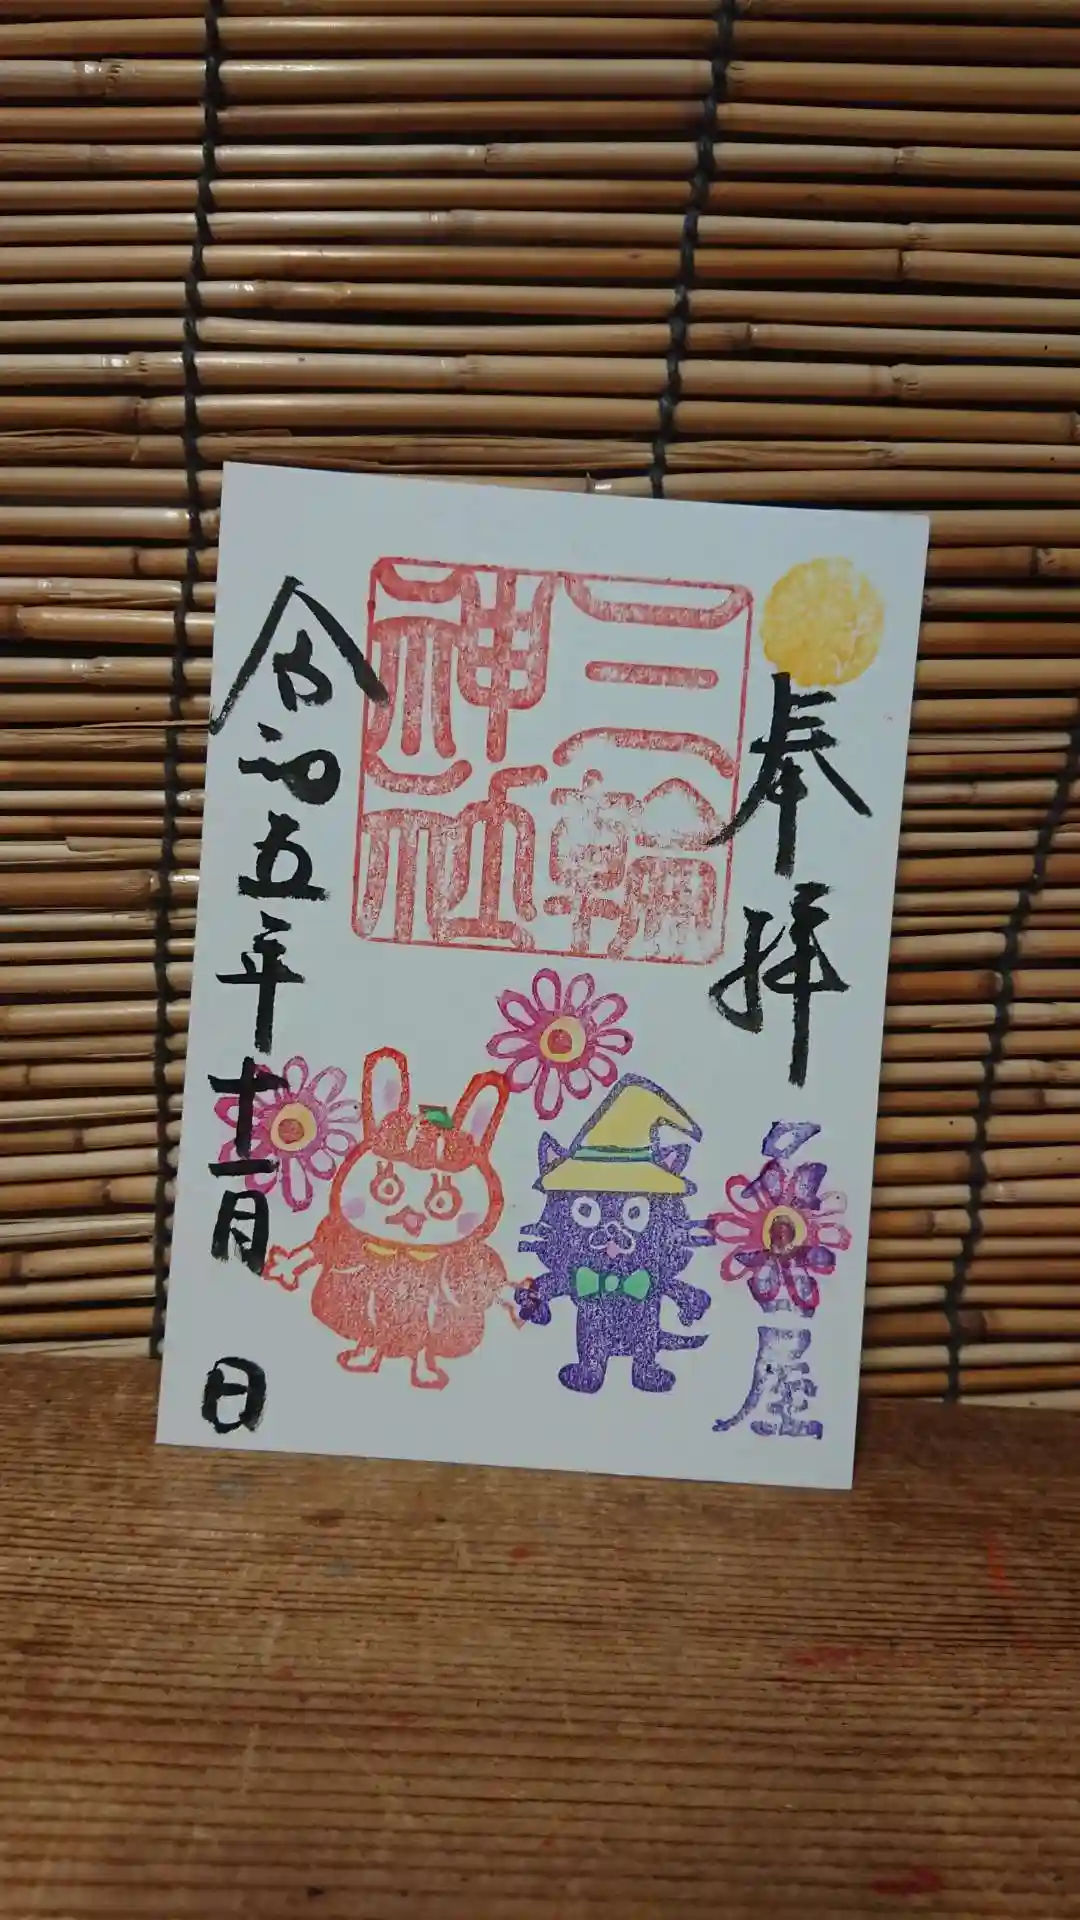 奉拝
三輪
神社
屋
令和五年十一月 日